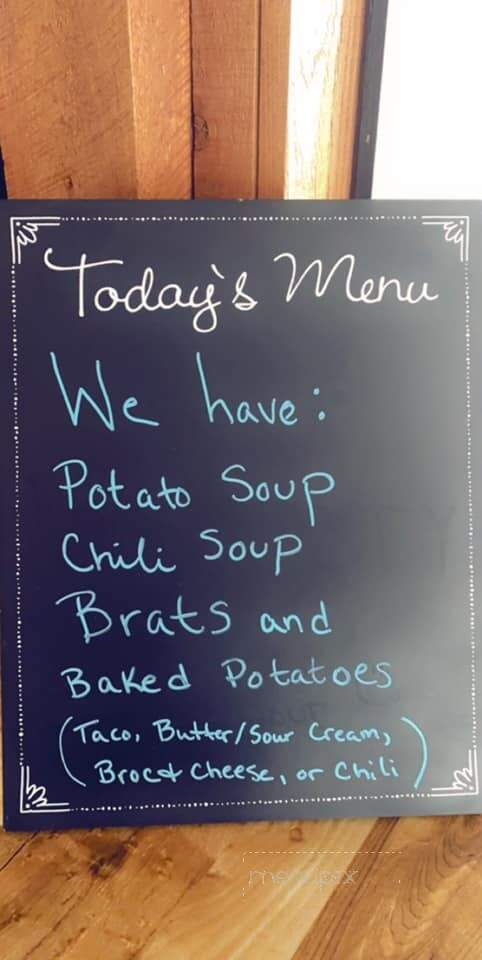 Today's Menu
We have:
Potato Soup
Chili Soup
Brats and
Baked Potatoes
(Taco, Butter/Sour Cream,
Broc & Cheese, or Chili)
menupix